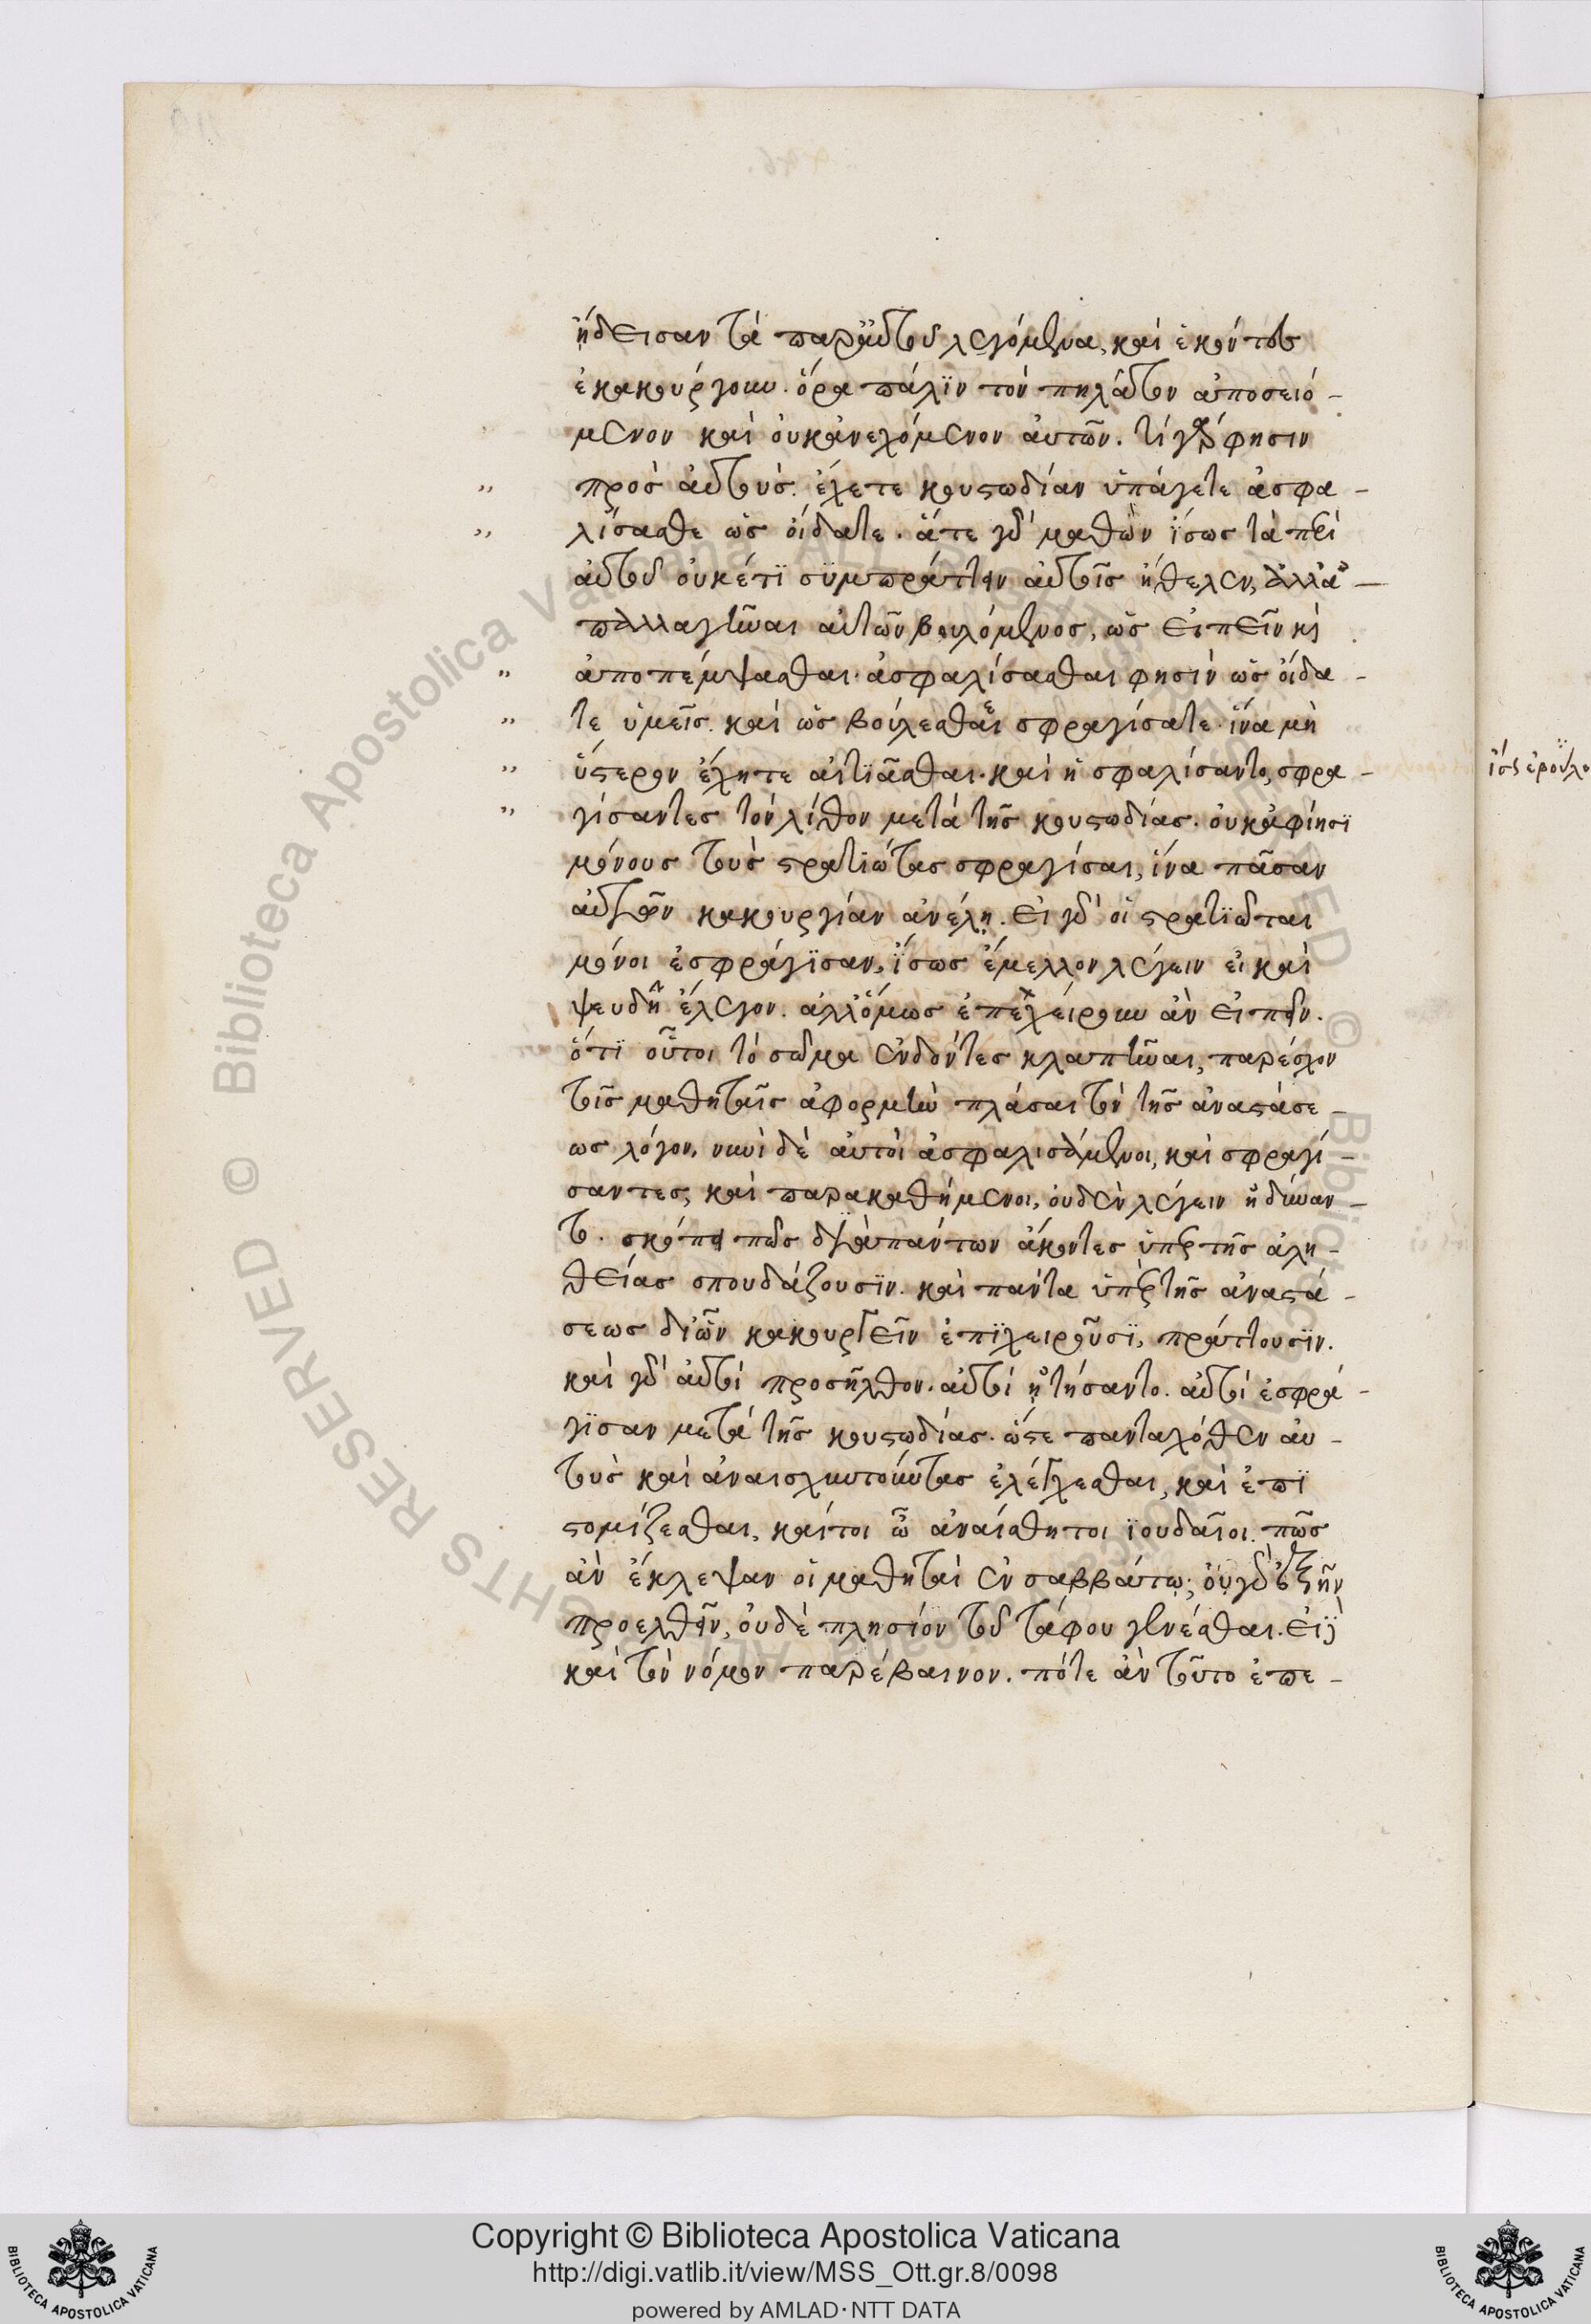 ἤδεισαν τὰ παρ' αὐτοῦ λεγόμενα, καὶ ἑκόντες
ἐκακούργουν. ὅρα πάλϊν τὸν πηλᾶτον ἀποσειό-
μενον καὶ οὐκ ἀνεχόμενον αὐτῶν. τί γάρ φησιν
πρὸς αὐτούς. ἔχετε κουστωδίαν ὑπάγετε ἀσφα-
λίσασθε ὡς οἴδατε. ἅτε γὰρ μαθὼν ἴσως τὰ περὶ
αὐτοῦ οὐκέτϊ συμπράττειν αὐτοῖς ἤθελεν, ἀλλ' ἀ-
παλλαγῆναι αὐτῶν βουλόμενος, ὡς εἰπεῖν καὶ
ἀποπέμψασθαι. ἀσφαλίσασθαι φησὶν ὡς οἴδα-
τε ὑμεῖς. καὶ ὡς βούλεσθε σφραγίσατε. ἵνα μὴ
ὕστερον ἔχητε αἰτϊᾶσθαι. καὶ ἠσφαλίσαντο, σφρα-
γίσαντες τὸν λίθον μετὰ τῆς κουστωδίας. οὐκ ἀφίησϊ
μόνους τοὺς στρατϊώτας σφραγίσαι, ἵνα πᾶσαν
αὐτῶν κακουργίαν ἀνέλῃ. εἰ γὰρ οἱ στρατϊῶται
μόνοι ἐσφράγϊσαν, ἴσως ἔμελλον λέγειν εἰ καὶ
ψευδῆ ἔλεγον. ἀλλ' ὅμως ἐπεχείρουν ἂν εἰπεῖν.
ὅτϊ οὗτοι τὸ σῶμα ἐνδόντες κλαπῆναι, παρέσχον
τοῖς μαθηταῖς ἀφορμὴν πλάσαι τὸν τῆς ἀναστάσε-
ως λόγον. νυνὶ δὲ αὐτοὶ ἀσφαλισάμενοι, καὶ σφραγί-
σαντες, καὶ παρακαθήμενοι, οὐδὲν λέγειν ἠδύναν-
το. σκόπει πῶς διαπάντων ἄκοντες ὑπὲρ τῆς ἀλη-
θείας σπουδάζουσϊν. καὶ πάντα ὑπὲρ τῆς ἀναστά-
σεως δι' ὧν κακουργεῖν ἐπϊχειροῦσϊ, πράττουσϊν.
καὶ γὰρ αὐτοὶ προσῆλθον. αὐτοὶ ᾐτήσαντο. αὐτοὶ ἐσφρά-
γϊσαν μετὰ τῆς κουστωδίας. ὥστε πανταχόθεν αὐ-
τοὺς καὶ ἀναισχυντοῦντας ἐλέγχεσθαι, καὶ ἐπϊ
στομίζεσθαι, καίτοι ὦ ἀναίσθητοι ϊουδαῖοι. πῶς
ἂν ἔκλεψαν οἱ μαθηταὶ ἐν σαββάτῳ; οὐ γὰρ ἐξῆν
προελθεῖν, οὐδὲ πλησίον τοῦ τάφου γενέσθαι. εἰ
καὶ τὸν νόμον παρέβαινον. πότε ἂν τοῦτο ἐπε-
Copyright © Biblioteca Apostolica Vaticana
http://digi.vatlib.it/view/MSS_Ott.gr.8/0098
powered by AMLAD·NTT DATA